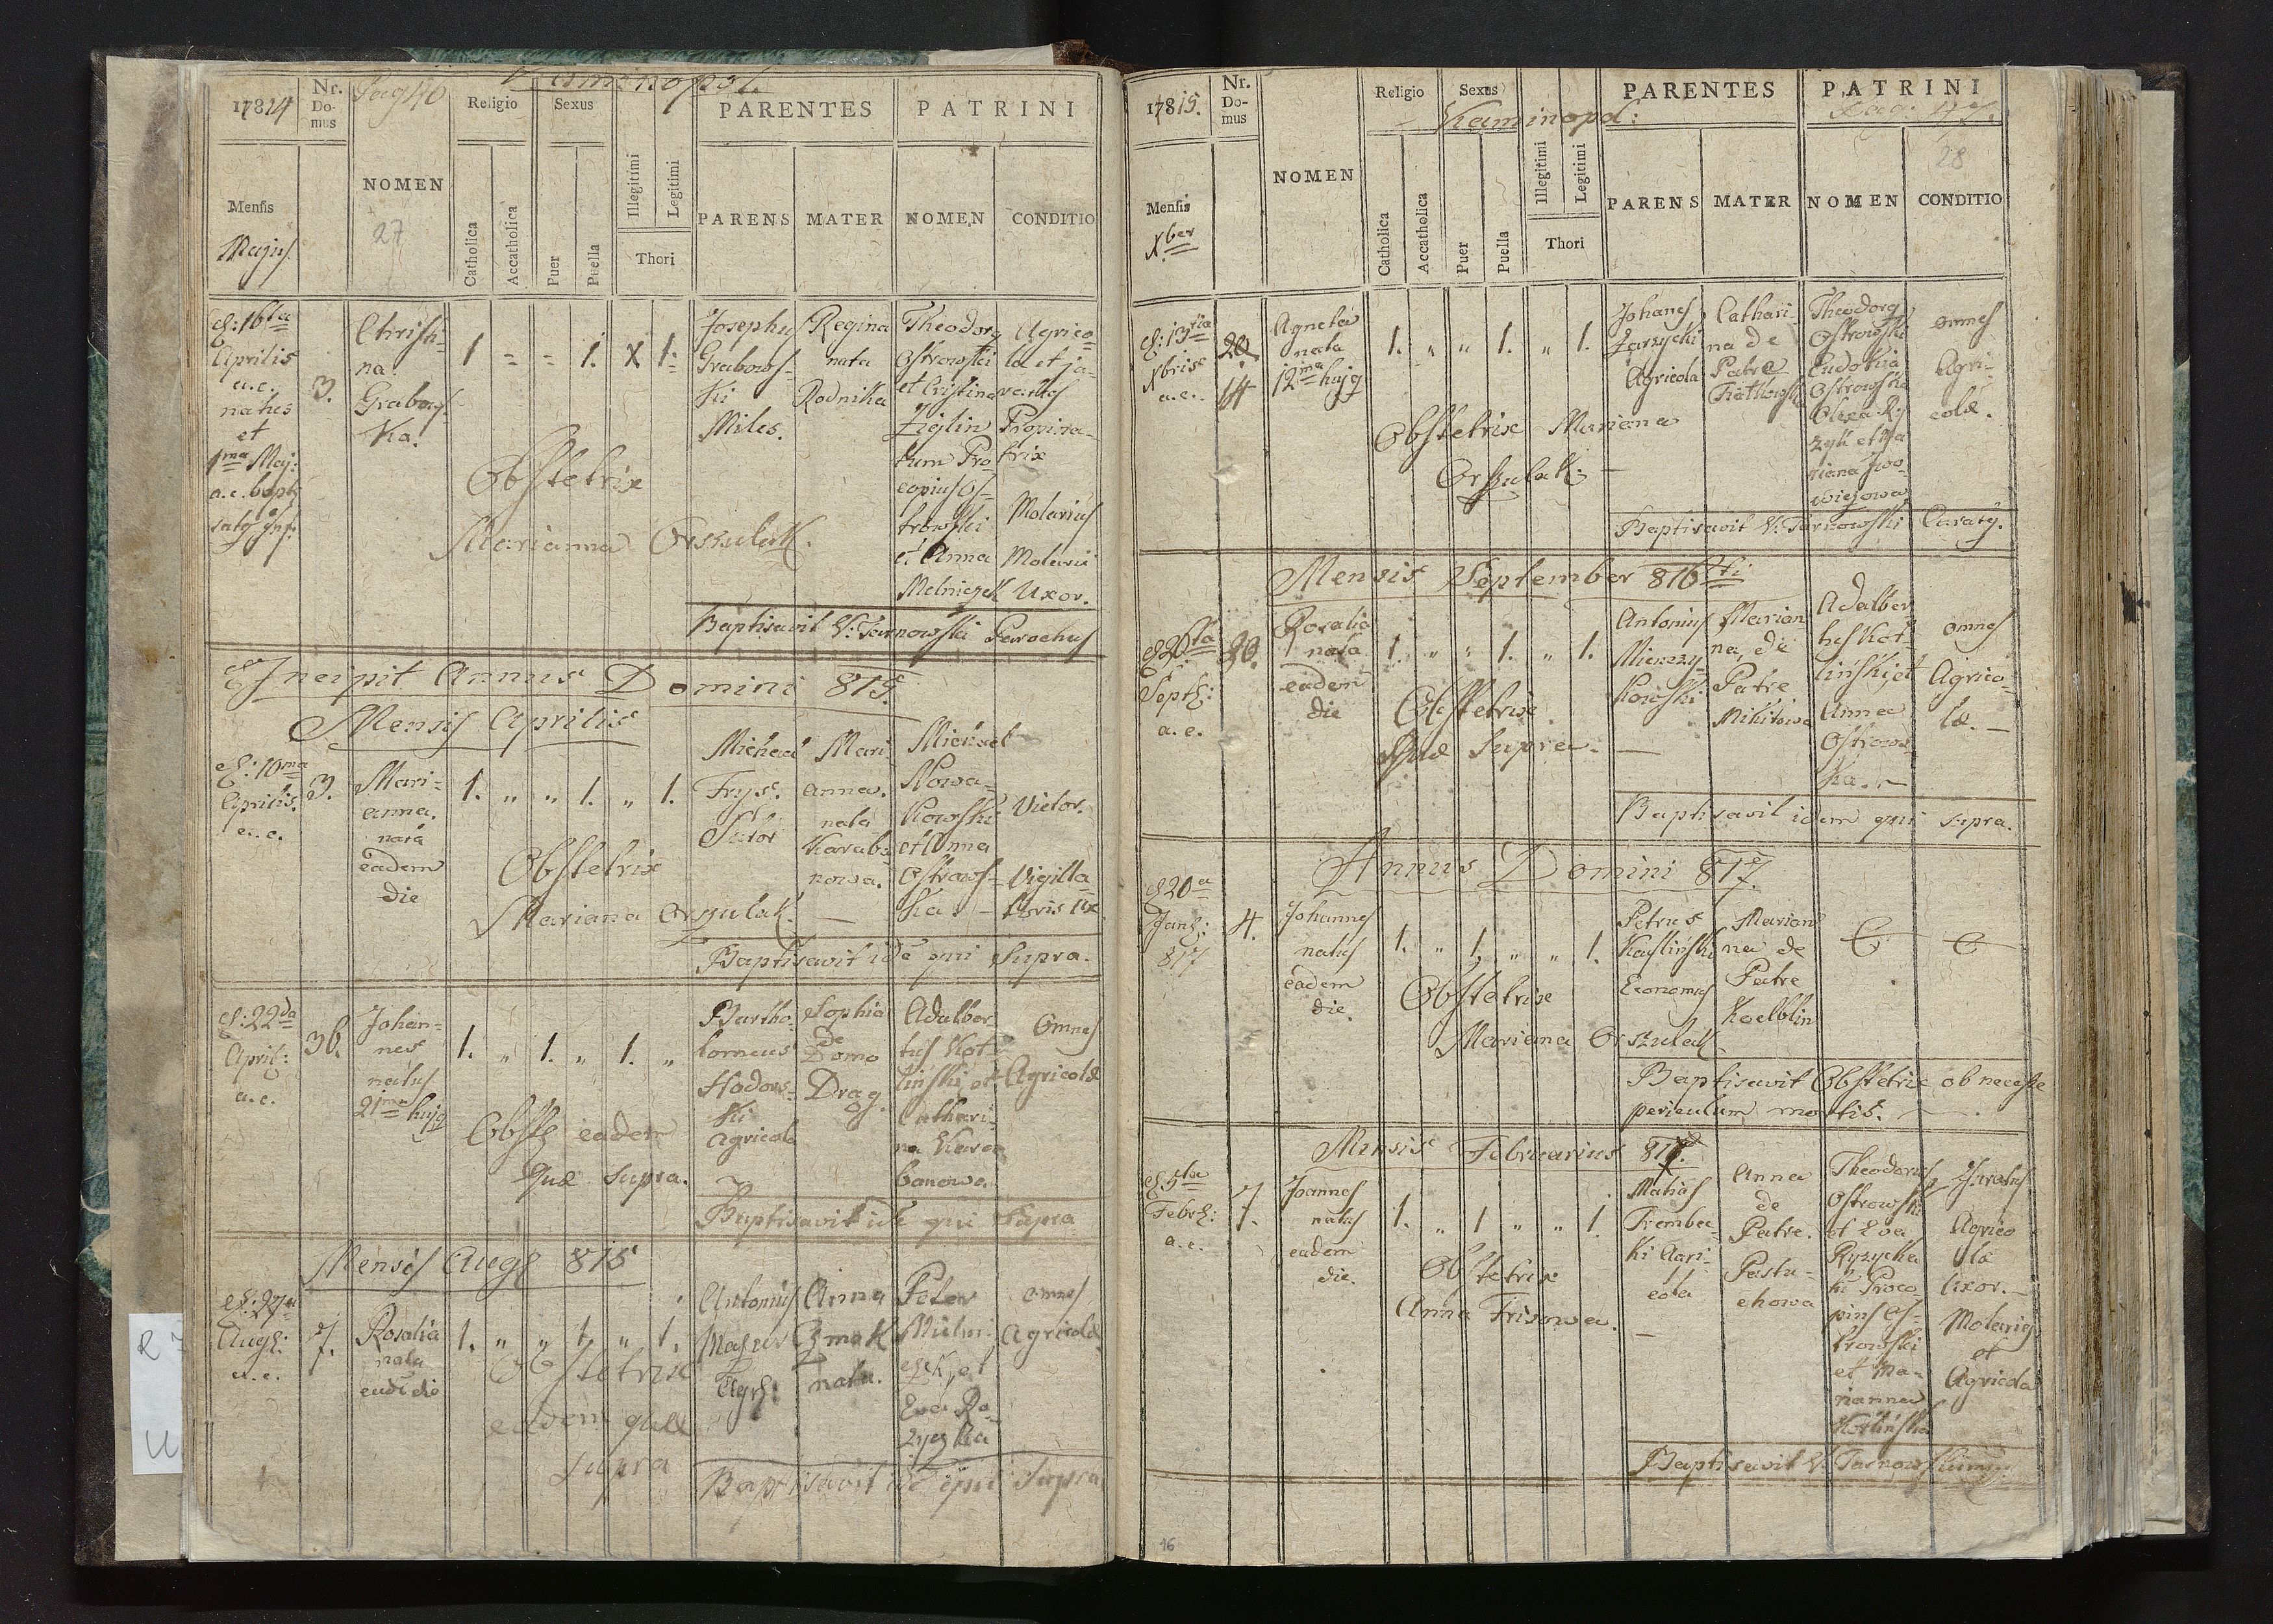 17814
Nr. Domus
Pag 40
Kaminopol.
Religio
Sexus
PARENTES
PATRINI
Mensis
Majus
NOMEN
27
Catholica
Accatholica
Puer
Puella
Illegitimi
Legitimi
Thori
PARENS
MATER
NOMEN
CONDITIO
16ta
Aprilis
a.c.
natus
et
1ma Maj:
a.c. bapti
3.
Christi-
na
Grabows-
ka.
1 = = 1. X 1.
Josephus
Grabows-
ki
Miles.
Regina
nata
Rodnika
Theodorg
Ostrowski
et Cristina
Ziglin
tum Pro-
copius Os-
trowski
et Anna
Melniczek
Agrico-
la et ja-
Propina-
trix
Molarius
Molarii
Uxor.
Obstetrix
Marianna Orszulak.
Baptisavit V: Tarnowski Parochus
Incipit Annus Domini 815.
Mensis Aprilis
10ma
Aprilis.
a.c.
3.
Mari-
anna.
nata
eadem
die
1. " " 1. " 1.
Michael
Frys.
Sutor
Mari-
anna.
nata
Karaba-
nowa.
Michael
Nowa-
kowski
et Anna
Ostrows-
ka. -
Vietor.
Vigilla-
toris Ux.
Obstetrix
Mariana Orszulak. -
Baptisavit ide qui Supra.
22da
April:
a.c.
36.
Johan-
nes
natus
21ma hujg
1. " 1. " 1. "
Bartho-
lomeus
Hadows-
ki
Agricola
Sophia
de
Domo
Drag.
Adalber-
tus Kot-
linski et
Cathari-
na Karaa
banowa.
Omnes
Agricolæ
Obst: eadem
Quæ Supra.
Baptisavit ide qui Supra
Mensis Aug: 815
27a
Aug:
a.c.
7.
Rosalia
nata
ead: die
1. " " 1. " 1.
Antonius
Mazur
Agr:
Anna
Zmak
nata.
Peter
Mulni-
czek et
Eva Ro-
zyczka
omnes
Agricolæ
Obstetrix
eadem quæ
Supra
Baptisavit ide qui Supra
17815.
Nr. Domus
Kaminopol:
Religio
Sexus
PARENTES
PATRINI
Pag. 47.
28
Mensis
Xber
NOMEN
Catholica
Accatholica
Puer
Puella
Illegitimi
Legitimi
Thori
PARENS
MATER
NOMEN
CONDITIO
13tia
Xbris
a.c.
20.
14
Agneta
nata
12ma hujg
1. " " 1. " 1.
Johanes
Zarzycki
Agricola
Cathari-
na de
Patre
Theodorg
Ostrowski
Eudokia
Ostrowska
omnes
Agri-
colæ.
Obstetrix Mariana
Orszulak. -
Baptisavit V: Tarnowski Curatg.
Mensis September 816ti
26ta
Sept:
a.c.
20.
Rosalia
nata
eadem
die
1. " " 1. " 1.
Antonius
Mierzzy-
kowski
Marian-
na, de
Patre
Mikitowa
Adalber-
tus Kot-
linski et
Anna
Ostrows-
ka. -
omnes
Agrico-
læ. -
Obstetrix
Quæ Supra. -
Baptisavit idem qui supra.
Annus Domini 817.
20a
Jan:
817
4.
Johannes
natus
eadem
die.
1. " 1, " " 1.
Petrus
Kaslinski
Economus
Marian-
na de
Patre
Kaelblin
Obstetrix
Mariana Orszulak
Baptisavit Obstetrix ob necesse
periculum mortis.
Mensis Februarius 817.
5ta
Febr:
a.c.
7.
Joannes
natus
eadem
die.
1. " 1 " " 1.
Matias
Trembec-
ki Agri-
cola
Anna
de
Patre.
Pastu-
chowa
Theodorus
Ostrowski
et Eva
Ryzycka
Proco-
pius Os-
trowski
et Ma-
rianna
Kotlinska
Agrico-
læ
Uxor. -
Molarig
et
Agricola
Obstetrix
Anna Frisowa.
Baptisavit V. Tarnowski
16